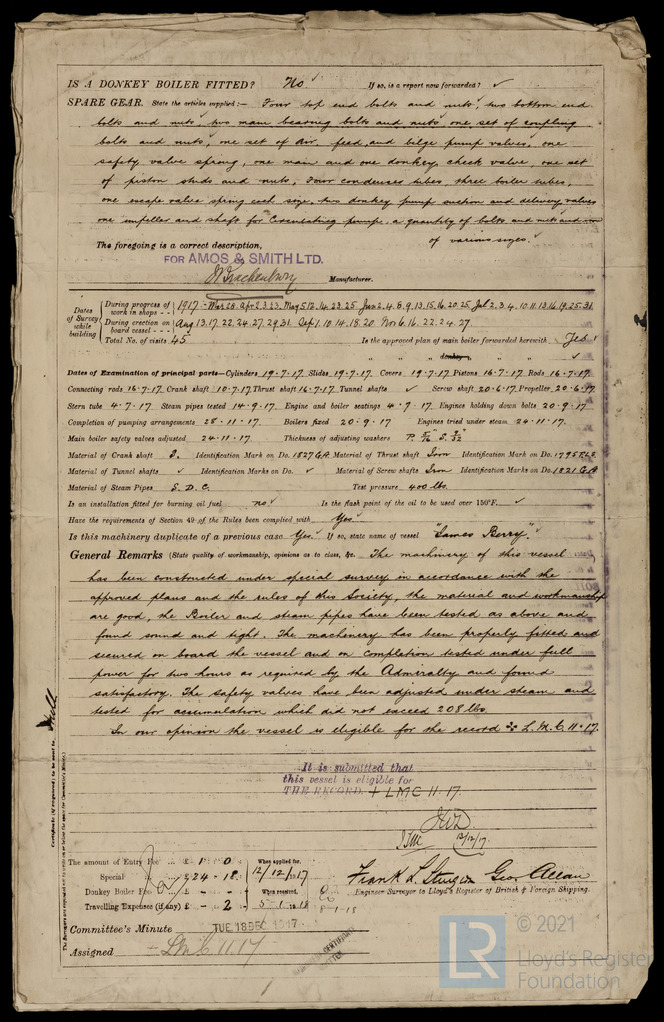 IS A DONKEY BOILER FITTED? No If so, is a report now forwarded? ✓
SPARE GEAR. State the articles supplied:— Four top end bolts and nuts, two bottom end
bolts and nuts two main bearing bolts and nuts one set of coupling
bolts and nuts, one set of air, feed, and bilge pump valves, one
safety valve spring, one main and one donkey, check valve, one set
of piston studs and nuts, Four condenser tubes, three boiler tubes,
one escape valve spring each size, two donkey pump suction and delivery valves
one impeller and shaft for Circulating pump, a quantity of bolts and nuts and iron
of various sizes.
The foregoing is a correct description,
FOR AMOS & SMITH LTD.
Manufacturer.
Dates of Survey while building
During progress of work in shops - - 1917 - Mar 28 Apr 2.3.23. May 5.12.14.23.25 Jun 2.4.8.9.13.15.16.20.25 Jul 2.3.4.10.11.13.16.19.25.31
During erection on board vessel - - - Aug 13.17.22.24.27.29.31 Sep 1.10.14.18.20 Nov 6.16.22.24.27
Total No. of visits 45 Is the approved plan of main boiler forwarded herewith Yes
" " " donkey " " " ✓
Dates of Examination of principal parts—Cylinders 19.7.17 Slides 19.7.17 Covers 19.7.17 Pistons 16.7.17 Rods 16.7.17
Connecting rods 16.7.17 Crank shaft 10.7.17 Thrust shaft 16.7.17 Tunnel shafts ✓ Screw shaft 20.6.17 Propeller 20.6.17
Stern tube 4.7.17 Steam pipes tested 14.9.17 Engine and boiler seatings 4.7.17 Engines holding down bolts 20.9.17
Completion of pumping arrangements 28.11.17 Boilers fixed 20.9.17 Engines tried under steam 24.11.17
Main boiler safety valves adjusted 24.11.17 Thickness of adjusting washers
Material of Crank shaft S. Identification Mark on Do. 1827 G.A. Material of Thrust shaft Iron Identification Mark on Do. 1795 F.L.S.
Material of Tunnel shafts ✓ Identification Marks on Do. ✓ Material of Screw shafts Iron Identification Marks on Do. 1821 G.A
Material of Steam Pipes S.D.C. Test pressure 400 lbs.
Is an installation fitted for burning oil fuel no Is the flash point of the oil to be used over 150°F. ✓
Have the requirements of Section 49 of the Rules been complied with Yes
Is this machinery duplicate of a previous case Yes If so, state name of vessel "James Berry".
General Remarks (State quality of workmanship, opinions as to class, &c. The machinery of this vessel
has been constructed under special survey in accordance with the
approved plans and the rules of this Society, the material and workmanship
are good, the Boiler and steam pipes have been tested as above and
found sound and tight. The machinery has been properly fitted and
secured on board the vessel and on completion tested under full
power for two hours as required by the Admiralty and found
satisfactory. The safety valves have been adjusted under steam and
tested for accumulation which did not exceed 208 lbs.
In our opinion the vessel is eligible for the record L.M.C 11.17.
It is submitted that
this vessel is eligible for
THE RECORD. + LMC 11.17.
12/12/17
Hull
Certificate (if required) to be sent to
The amount of Entry Fee .. £ 1 : 0 When applied for,
Special .. £ 24 : 18 : 12/12/1917
Donkey Boiler Fee .. £ - : - When received,
Travelling Expenses (if any) £ - : 2 5.1.1918
8-1-18
Frank L. Sturgeon Geo. Allan
Engineer Surveyor to Lloyd's Register of British & Foreign Shipping.
Committee's Minute TUE. 18 DEC. 1917
Assigned + LMC 11.17
© 2021
LR Lloyd's Register
Foundation